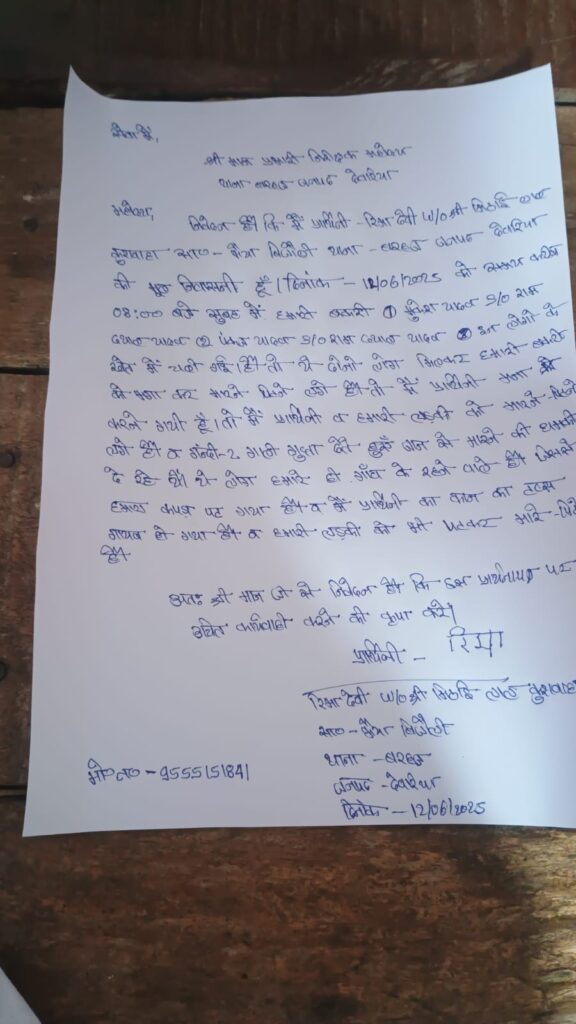 सेवा में,
श्री मान प्रभारी निरीक्षक महोदय
थाना बरहज जनपद देवरिया
महोदय,
निवेदन है कि मैं प्रार्थिनी - रिमा देवी W/O श्री मिठाई लाल
कुशवाहा सा०- मैना बिजौली थाना - बरहज जनपद देवरिया
की मूल निवासनी हूँ। दिनांक - 12/06/2025 को समय करीब
08:00 बजे सुबह में हमारी बकरी ① सुरेश यादव S/O राम
दयाल यादव ② यादव S/O राम दयाल यादव इन लोगो के
खेत में चली गई है तो ये दोनो लोग मिलकर हमारी बकरी
को भगा कर मारने पिटने लगे है तो मैं प्रार्थिनी मना
करने गयी हूँ। तो मैं प्रार्थिनी व हमारी लड़की को मारने पिटने
लगे है व गन्दी-2 गाली गुप्ता देते हुऐ जान से मारने की धमकी
दे रहे है ये लोग हमारे ही गाँव के रहने वाले है जिससे
हमारा कपड़ा फट गया है व मैं प्रार्थिनी का कान का टप्स
गायब हो गया है व हमारी लड़की को भी पटकर मारे - पिटे
है
अतः श्री मान जी से निवेदन है कि इस प्रार्थनापत्र पर
उचित कार्यवाही करने की कृपा करे।
प्रार्थिनी - रिमा
रिमा देवी W/O श्री मिठाई लाल कुशवाहा
सा०- मैना बिजौली
थाना - बरहज
मो० न० - 9555151841
जनपद - देवरिया
दिनांक - 12/06/2025